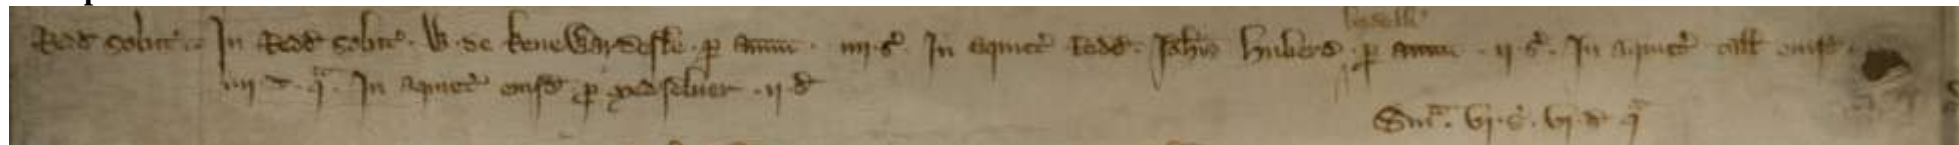 bedelli
Redd solut'. In Redd solut'. W. de keneWardesle. p annu. iiij. s'. In aquiet' Redd. Joh'is Huberd. p annu. ij. s'. In aquiet' call eiusd.
iiij d. qa. In aquiet' eiusd p medselver. ij. d
Sma. vj. s'. vj. d qa